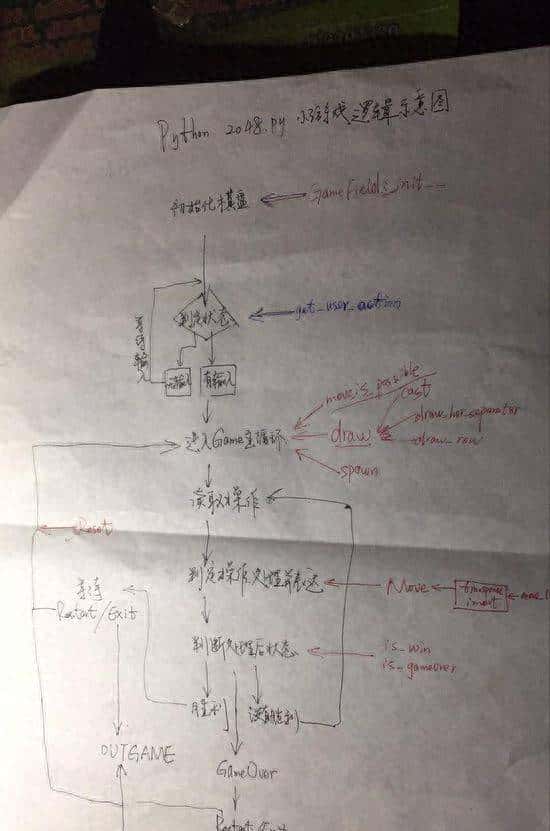 Python 2048.py 小游戏逻辑示意图
初始化棋盘
GameField__init__
判定状态
get_user_action
等待输入
无输入
有输入
move_is_possible
cast
进入Game主循环
draw
draw_hor_separator
draw_row
spawn
读取操作
Reset
判定操作
Move
transpose
invert
等待
Restart/Exit
判断处理后状态
is_win
is_gameover
胜利
没有胜利
OUTGAME
GameOver
Restart/Exit